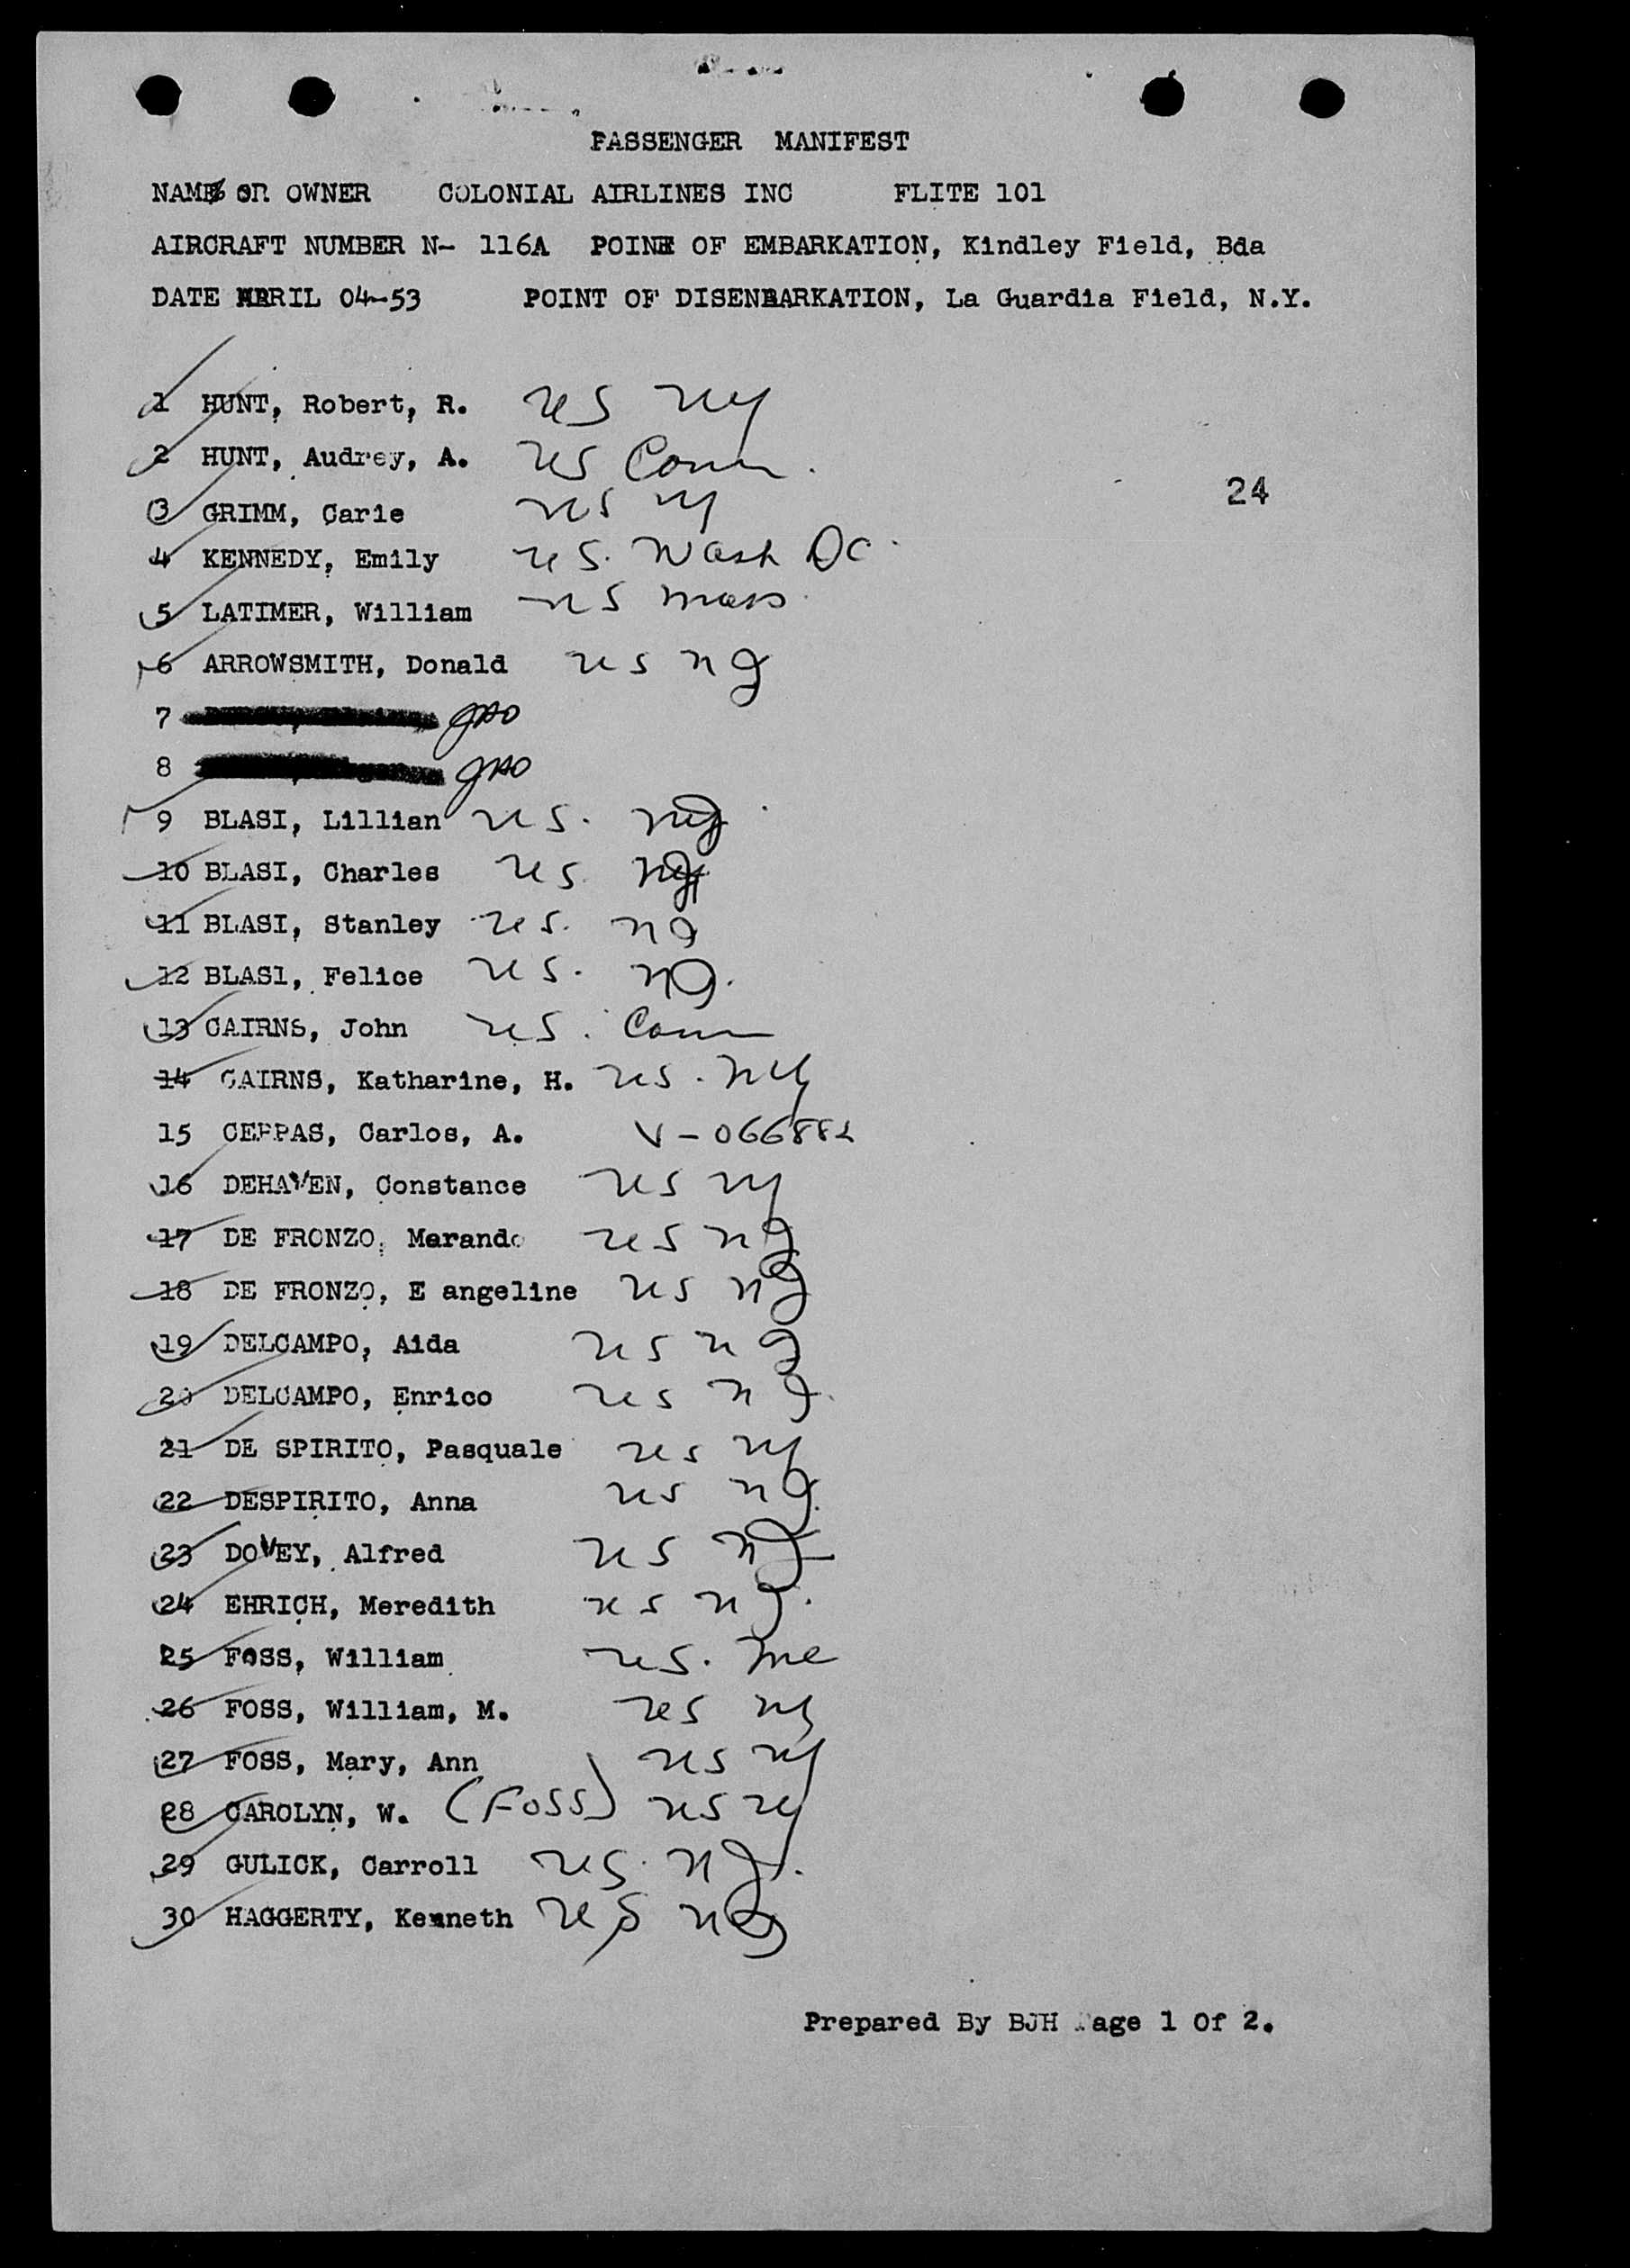 PASSENGER MANIFEST
NAME OR OWNER COLONIAL AIRLINES INC FLITE 101
AIRCRAFT NUMBER N- 116A POINT OF EMBARKATION, Kindley Field, Bda
DATE APRIL 04-53 POINT OF DISENBARKATION, La Guardia Field, N.Y.
1 HUNT, Robert, R. US NY
2 HUNT, Audrey, A. US Conn.
24
3 GRIMM, Carie US NY
4 KENNEDY, Emily US. Wash DC.
5 LATIMER, William US Mass.
6 ARROWSMITH, Donald US NJ
7
8
9 BLASI, Lillian US. NJ
10 BLASI, Charles US. NJ
11 BLASI, Stanley US. NJ
12 BLASI, Felice US. NJ.
13 CAIRNS, John US. Conn
14 CAIRNS, Katharine, H. US. NY
15 CEPPAS, Carlos, A. V-066882
16 DEHAVEN, Constance US NY
17 DE FRONZO, Marando US NJ
18 DE FRONZO, E angeline US NJ
19 DELCAMPO, Aida US NJ
20 DELCAMPO, Enrico US NJ.
21 DE SPIRITO, Pasquale US NY
22 DESPIRITO, Anna US NJ.
23 DOVEY, Alfred US NJ
24 EHRICH, Meredith US NJ.
25 FOSS, William US. Me
26 FOSS, William, M. US NY
27 FOSS, Mary, Ann US NY
28 CAROLYN, W. (FOSS) US NY
29 GULICK, Carroll US. NJ.
30 HAGGERTY, Kenneth US NJ
Prepared By BJH Page 1 Of 2.